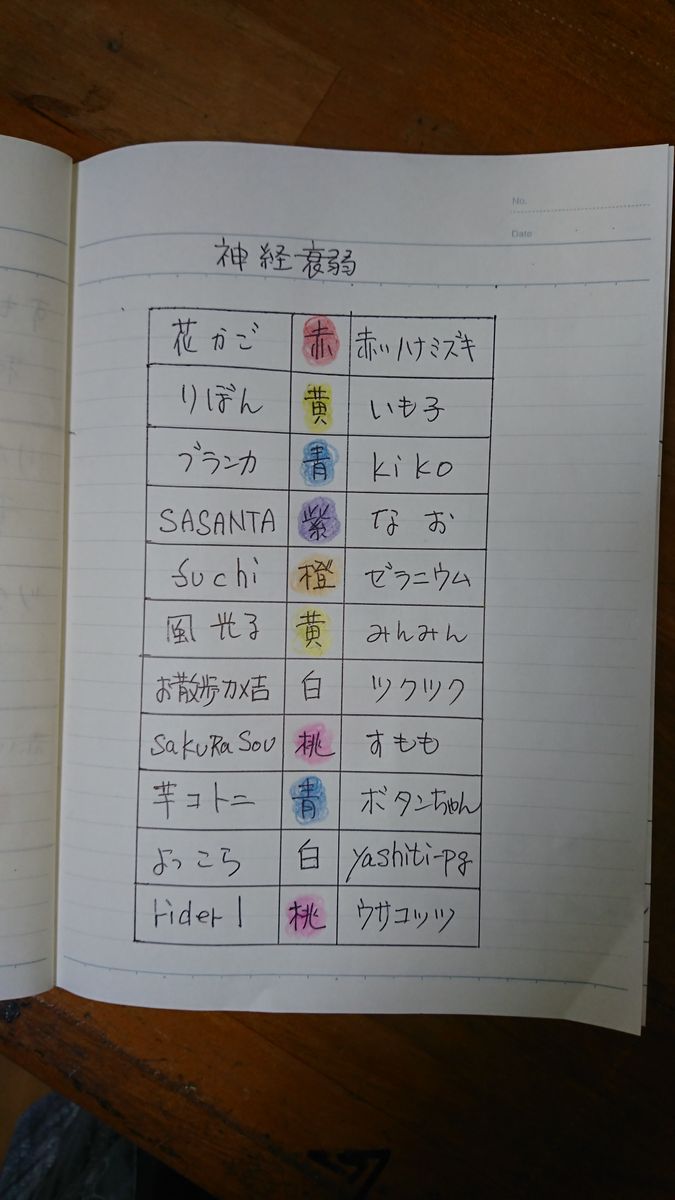 No.
Date
神経衰弱
花かご 赤 赤いハナミズキ
りぼん 黄 いも子
ブランカ 青 kiko
SASANTA 紫 なお
suchi 橙 ゼラニウム
風光る 黄 みんみん
お散歩カメ吉 白 ツクツク
SakuRaSou 桃 すもも
芋コトニ 青 ボタンちゃん
よっこら 白 yashiti-pg
rider1 桃 ウサコッツ